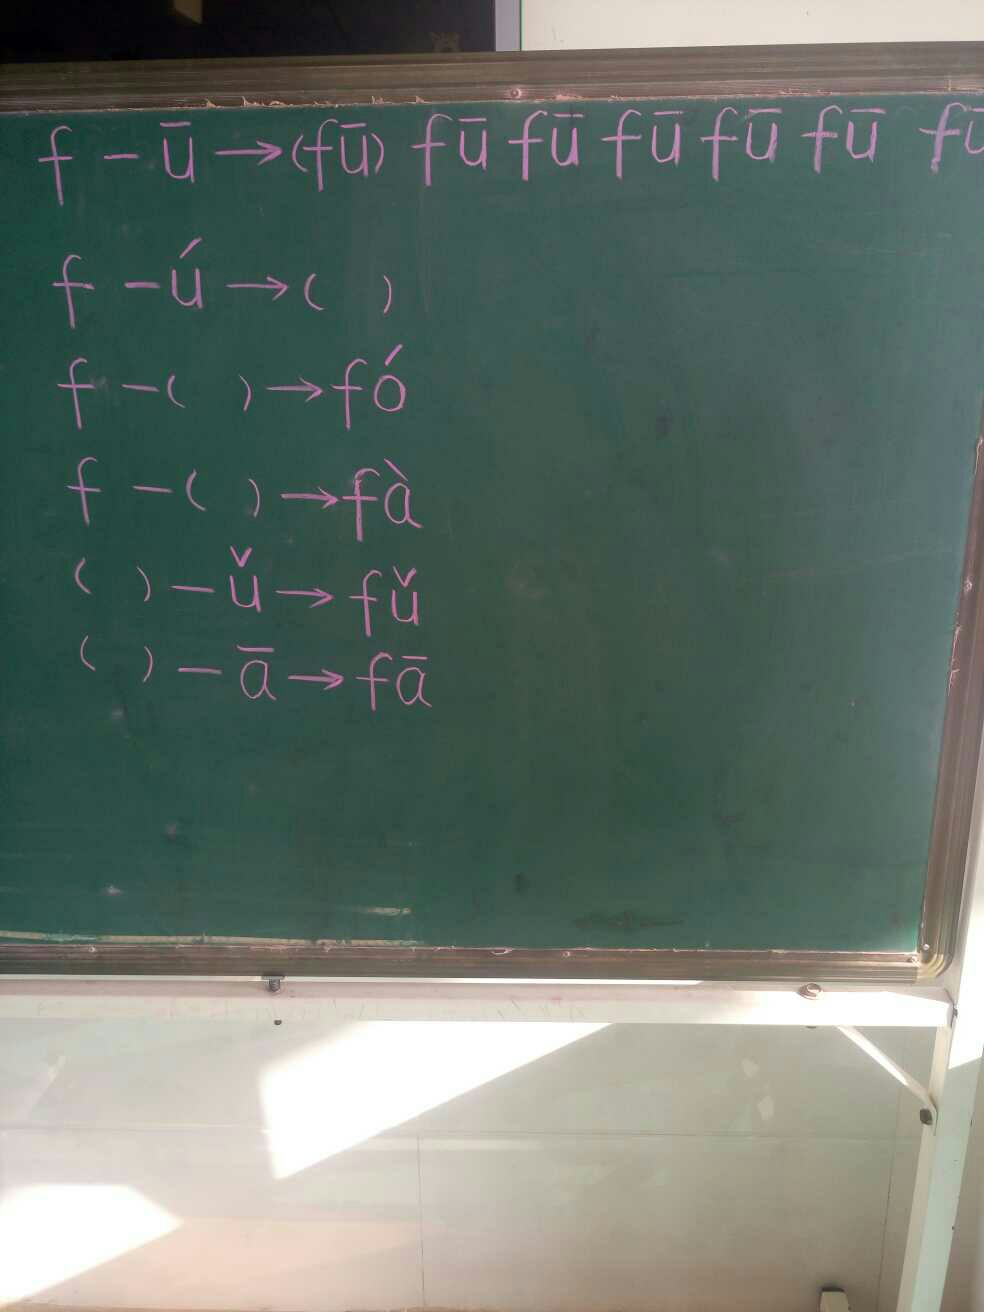 f - ū → (fū) fū fū fū fū fū fū
f - ú → ( )
f - ( ) → fó
f - ( ) → fà
( ) - ǔ → fǔ
( ) - ā → fā